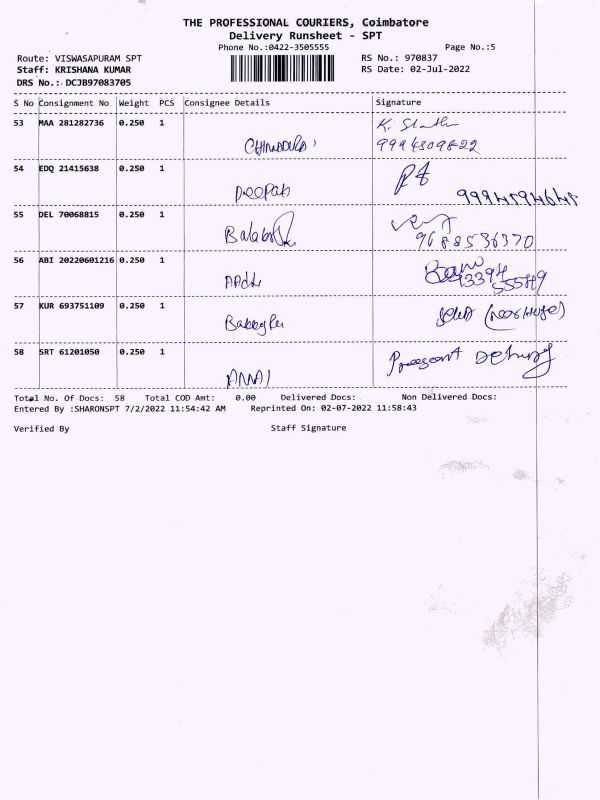 THE PROFESSIONAL COURIERS, Coimbatore
Delivery Runsheet - SPT
Phone No.:0422-3505555 Page No.:5
Route: VISWASAPURAM SPT RS No.: 970837
Staff: KRISHANA KUMAR RS Date: 02-Jul-2022
DRS No.: DCJB97083705
S No Consignment No Weight PCS Consignee Details Signature
53 MAA 281282736 0.250 1
9994309822
54 EDQ 21415638 0.250 1
Deepak 9994594645
55 DEL 70068815 0.250 1
9688536370
56 ABI 20220601216 0.250 1
93394
55549
57 KUR 693751109 0.250 1
58 SRT 61201050 0.250 1
Total No. Of Docs: 58 Total COD Amt: 0.00 Delivered Docs: Non Delivered Docs:
Entered By :SHARONSPT 7/2/2022 11:54:42 AM Reprinted On: 02-07-2022 11:58:43
Verified By Staff Signature